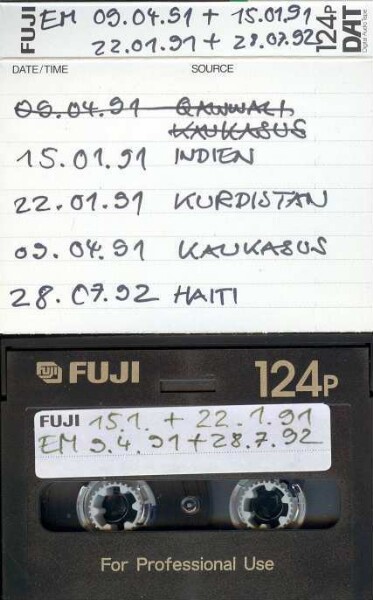 FUJI EM 09.04.91 + 15.01.91
22.01.91 + 28.07.92
124P DAT
Digital Audio Tape
DATE/TIME SOURCE
09.04.91 QAWWALI,
KAUKASUS
15.01.91 INDIEN
22.01.91 KURDISTAN
09.04.91 KAUKASUS
28.07.92 HAITI
FUJI 124P
FUJI 15.1. + 22.1.91
EM 9.4.91 + 28.7.92
For Professional Use